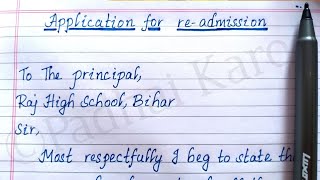 Application for re-admission
To The principal,
Raj High School, Bihar
Sir,
Most respectfully I beg to state